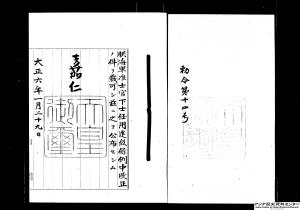 勅令第十四号
朕海軍准士官下士任用進級條例中改正
ノ件ヲ裁可シ茲ニ之ヲ公布セシム
嘉仁
天皇御璽
大正六年一月二十九日
アジア歴史資料センター